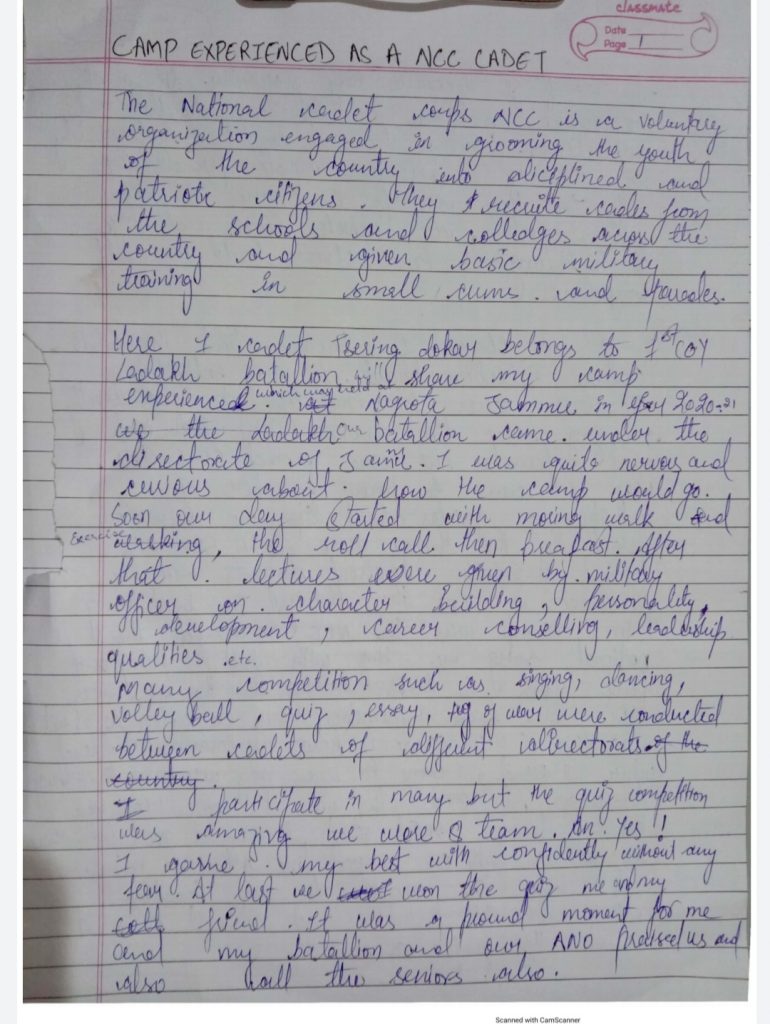 classmate
Date
Page 1
CAMP EXPERIENCED AS A NCC CADET
The National cadet corps NCC is a voluntary
organization engaged in grooming the youth
of the country into disciplined and
patriotic citizens. They recruite cades from
the schools and colledges across the
country and given basic military
training in small cums. and parades.
Here I cadet Tsering dokar belongs to 1st COY
Ladakh batallion will share my camp
experienced. which was held at Nagrota Jammu in 2020-21
we the Ladakh our batallion came. under the
directorate of Jammu. I was quite nervous and
curious about. how the camp would go.
Soon our day started with moving walk and
Exercise, the roll call. then breafast. After
that. lectures were given by. military
officer on. character building, personality,
development, career conselling, leadership
qualities .etc.
Many competition such as singing, dancing,
volley ball, quiz, essay, tug of war were conducted
between cadets of different directorats of the
country.
I participate in many but the quiz competition
was amazing we were 8 team. An. Yes!!
I gave. my best with confidently without any
fear. At last we won the quiz me and my
friend. It was a pround moment for me
and my batallion and our ANO praised us and
also all the seniors also.
Scanned with CamScanner